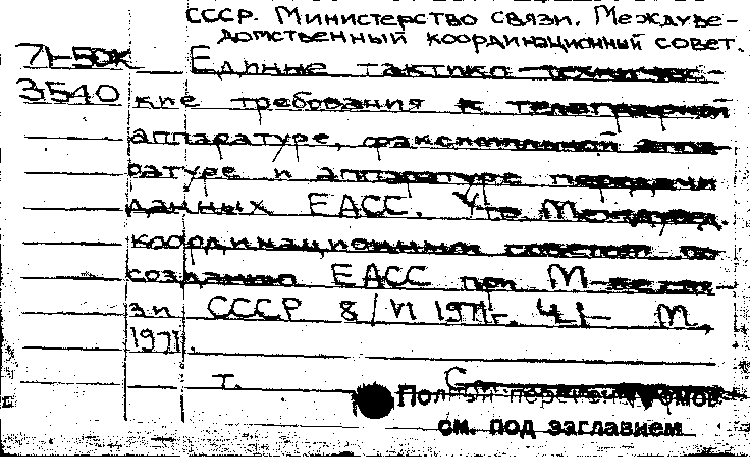 СССР. Министерство связи. Междуве-
домственный координационный совет.
71-50к Единые тактико-техничес-
3540 кие требования к телеграфной
аппаратуре, факсимильной аппа-
ратуре и аппаратуре передачи
данных ЕАСС. Утв Междувед.
координационным советом по
созданию ЕАСС при М-ве свя-
зи СССР 8/VI 1971г. Ч.1- М.,
1971.
т. С
Полный перечень томов
см. под заглавием